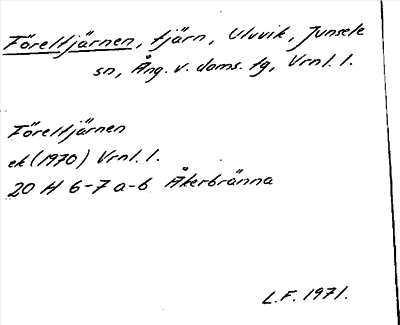 Föreltjärnen, tjärn, Uluvik, Junsele
sn, Ång. v. doms. tg, Vrnl. l.
Föreltjärnen
ek (1970) Vrnl. l.
20 H 6-7 a-b Åkerbränna
L.F. 1971.